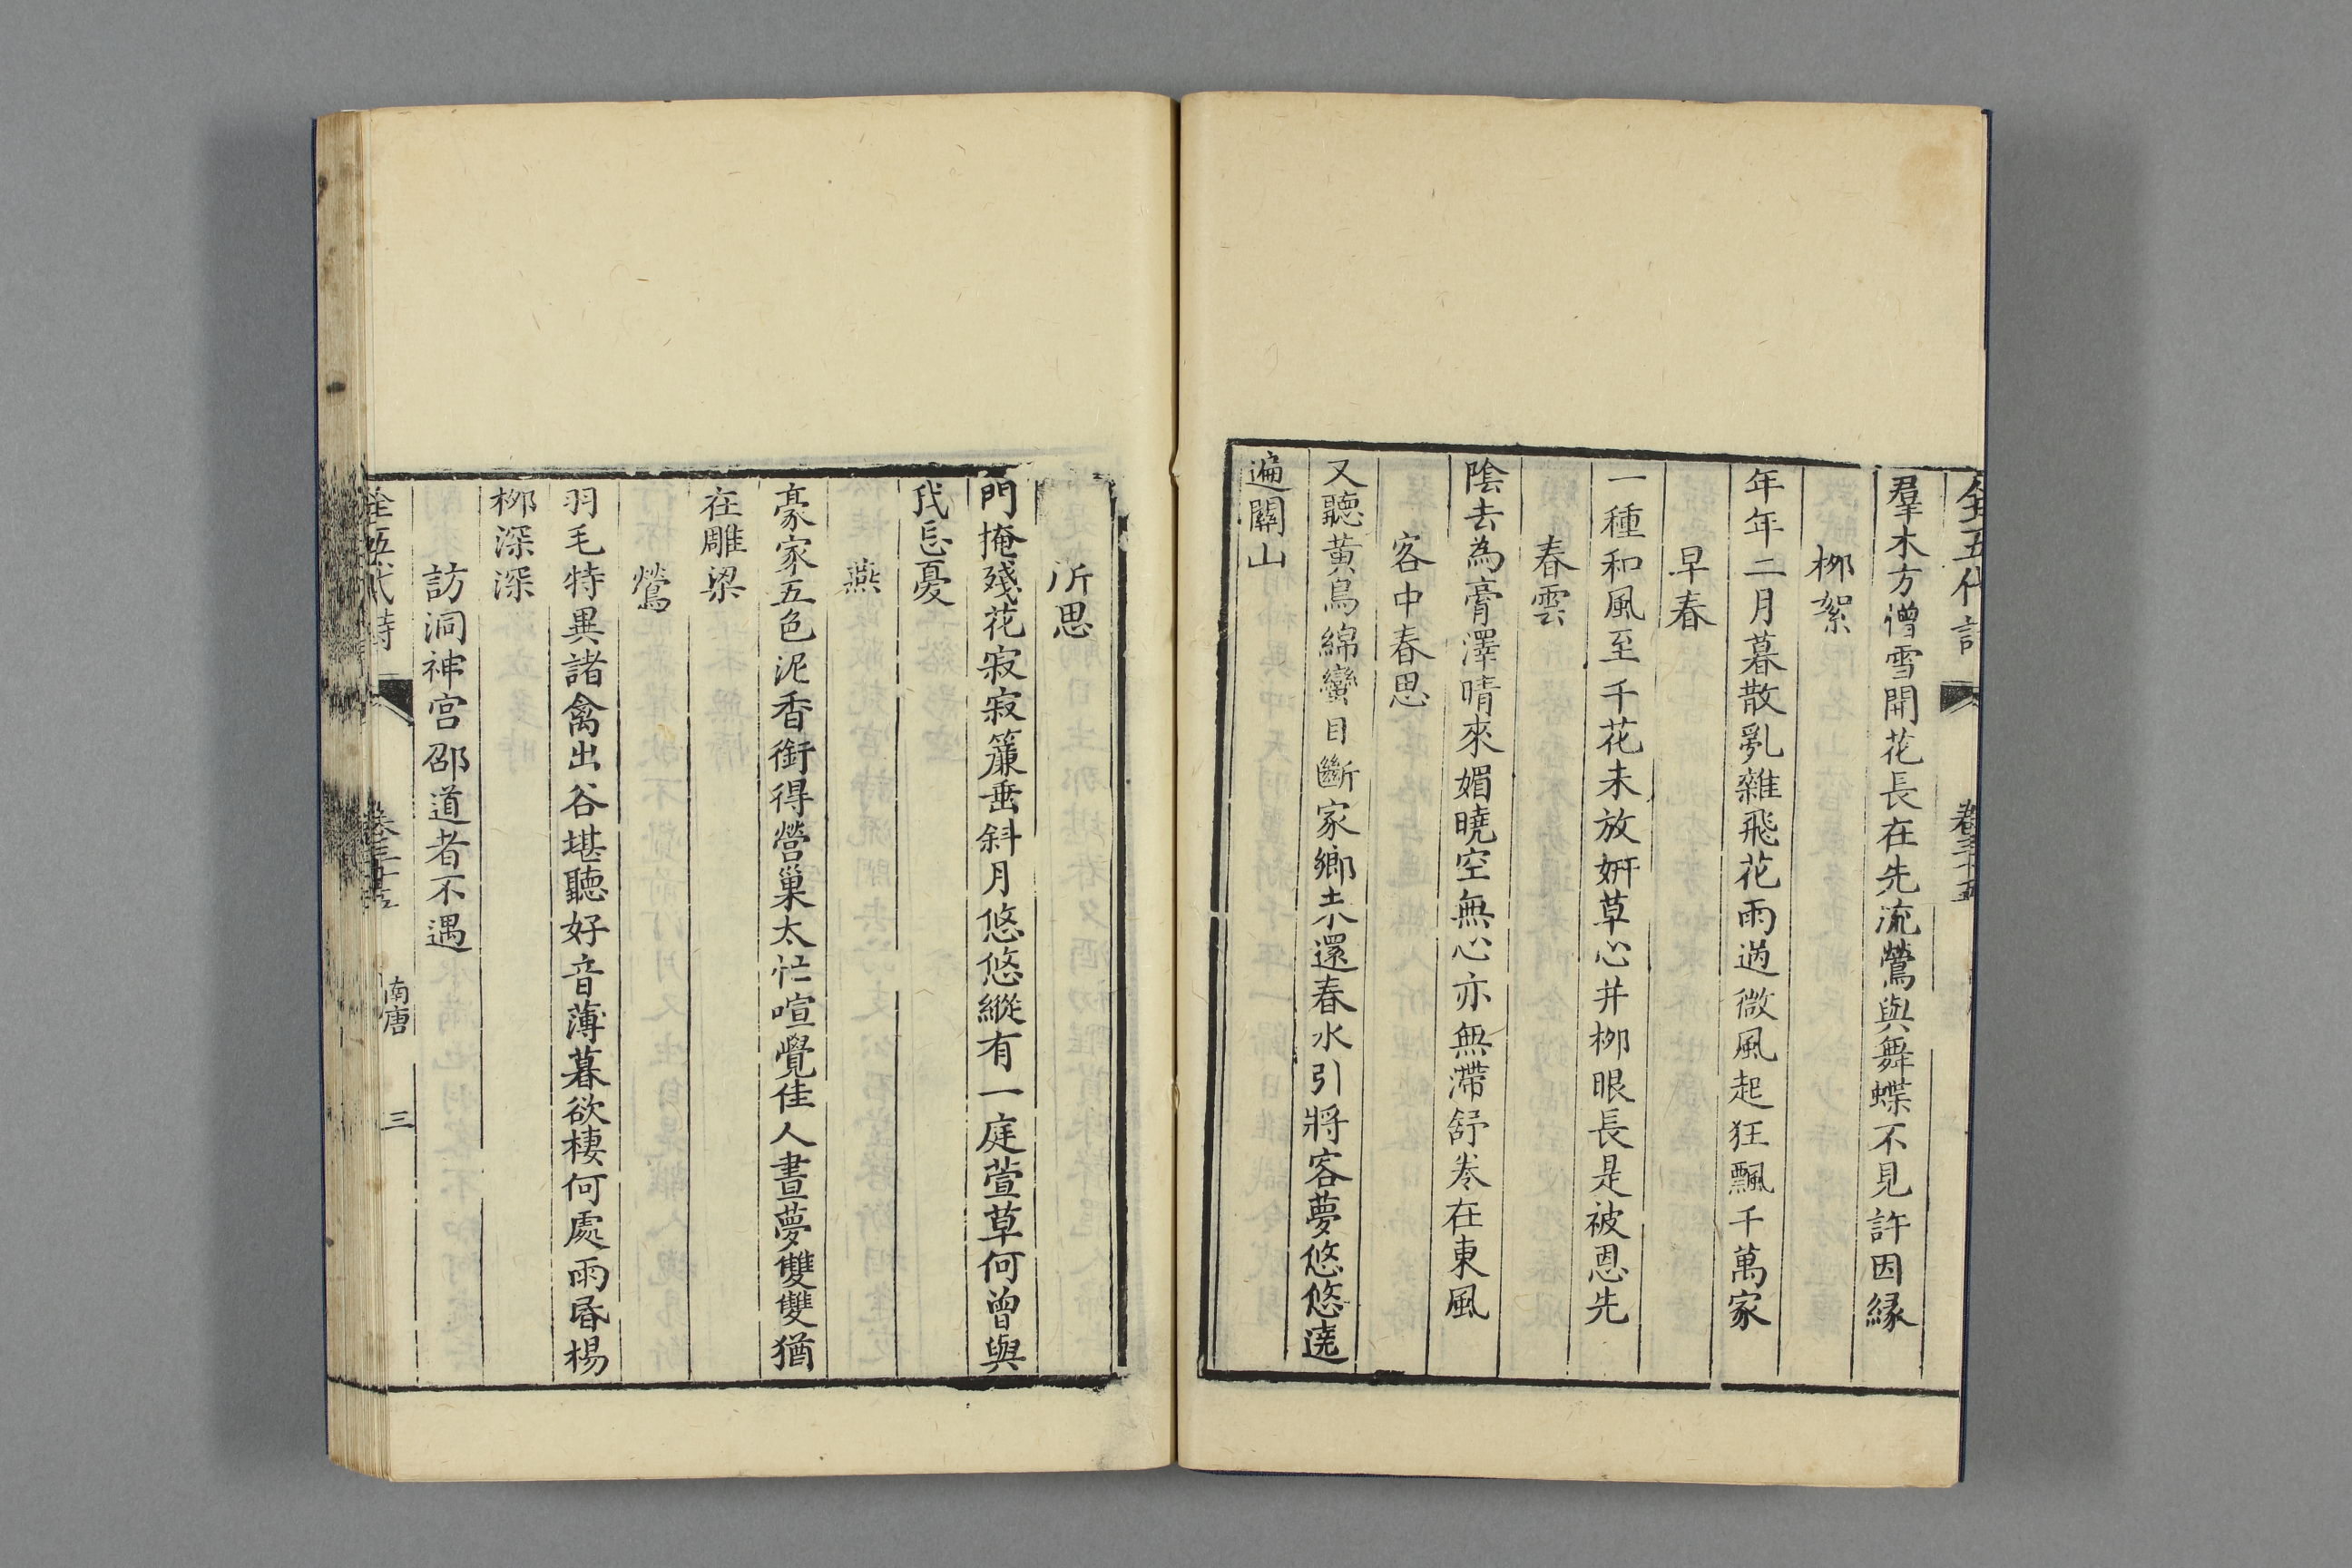 全五代詩 卷三十五
羣木方憎雪開花長在先流鶯與舞蝶不見許因緣
栁絮
年年二月暮散亂雜飛花雨過微風起狂飄千萬家
早春
一種和風至千花未放妍草心并栁眼長是被恩先
春雲
陰去為膏澤晴來媚曉空無心亦無滯舒卷在東風
客中春思
又聽黃鳥綿蠻目斷家鄉未還春水引將客夢悠悠遶
遍關山
所思
門掩殘花寂寂簾垂斜月悠悠縱有一庭萱草何曾與
我忘憂
燕
豪家五色泥香銜得營巢太忙喧覺佳人晝夢雙雙猶
在雕梁
鶯
羽毛特異諸禽出谷堪聽好音薄暮欲棲何處雨昏楊
栁深深
訪洞神宮邵道者不遇
全五代詩 卷三十五 南唐 三